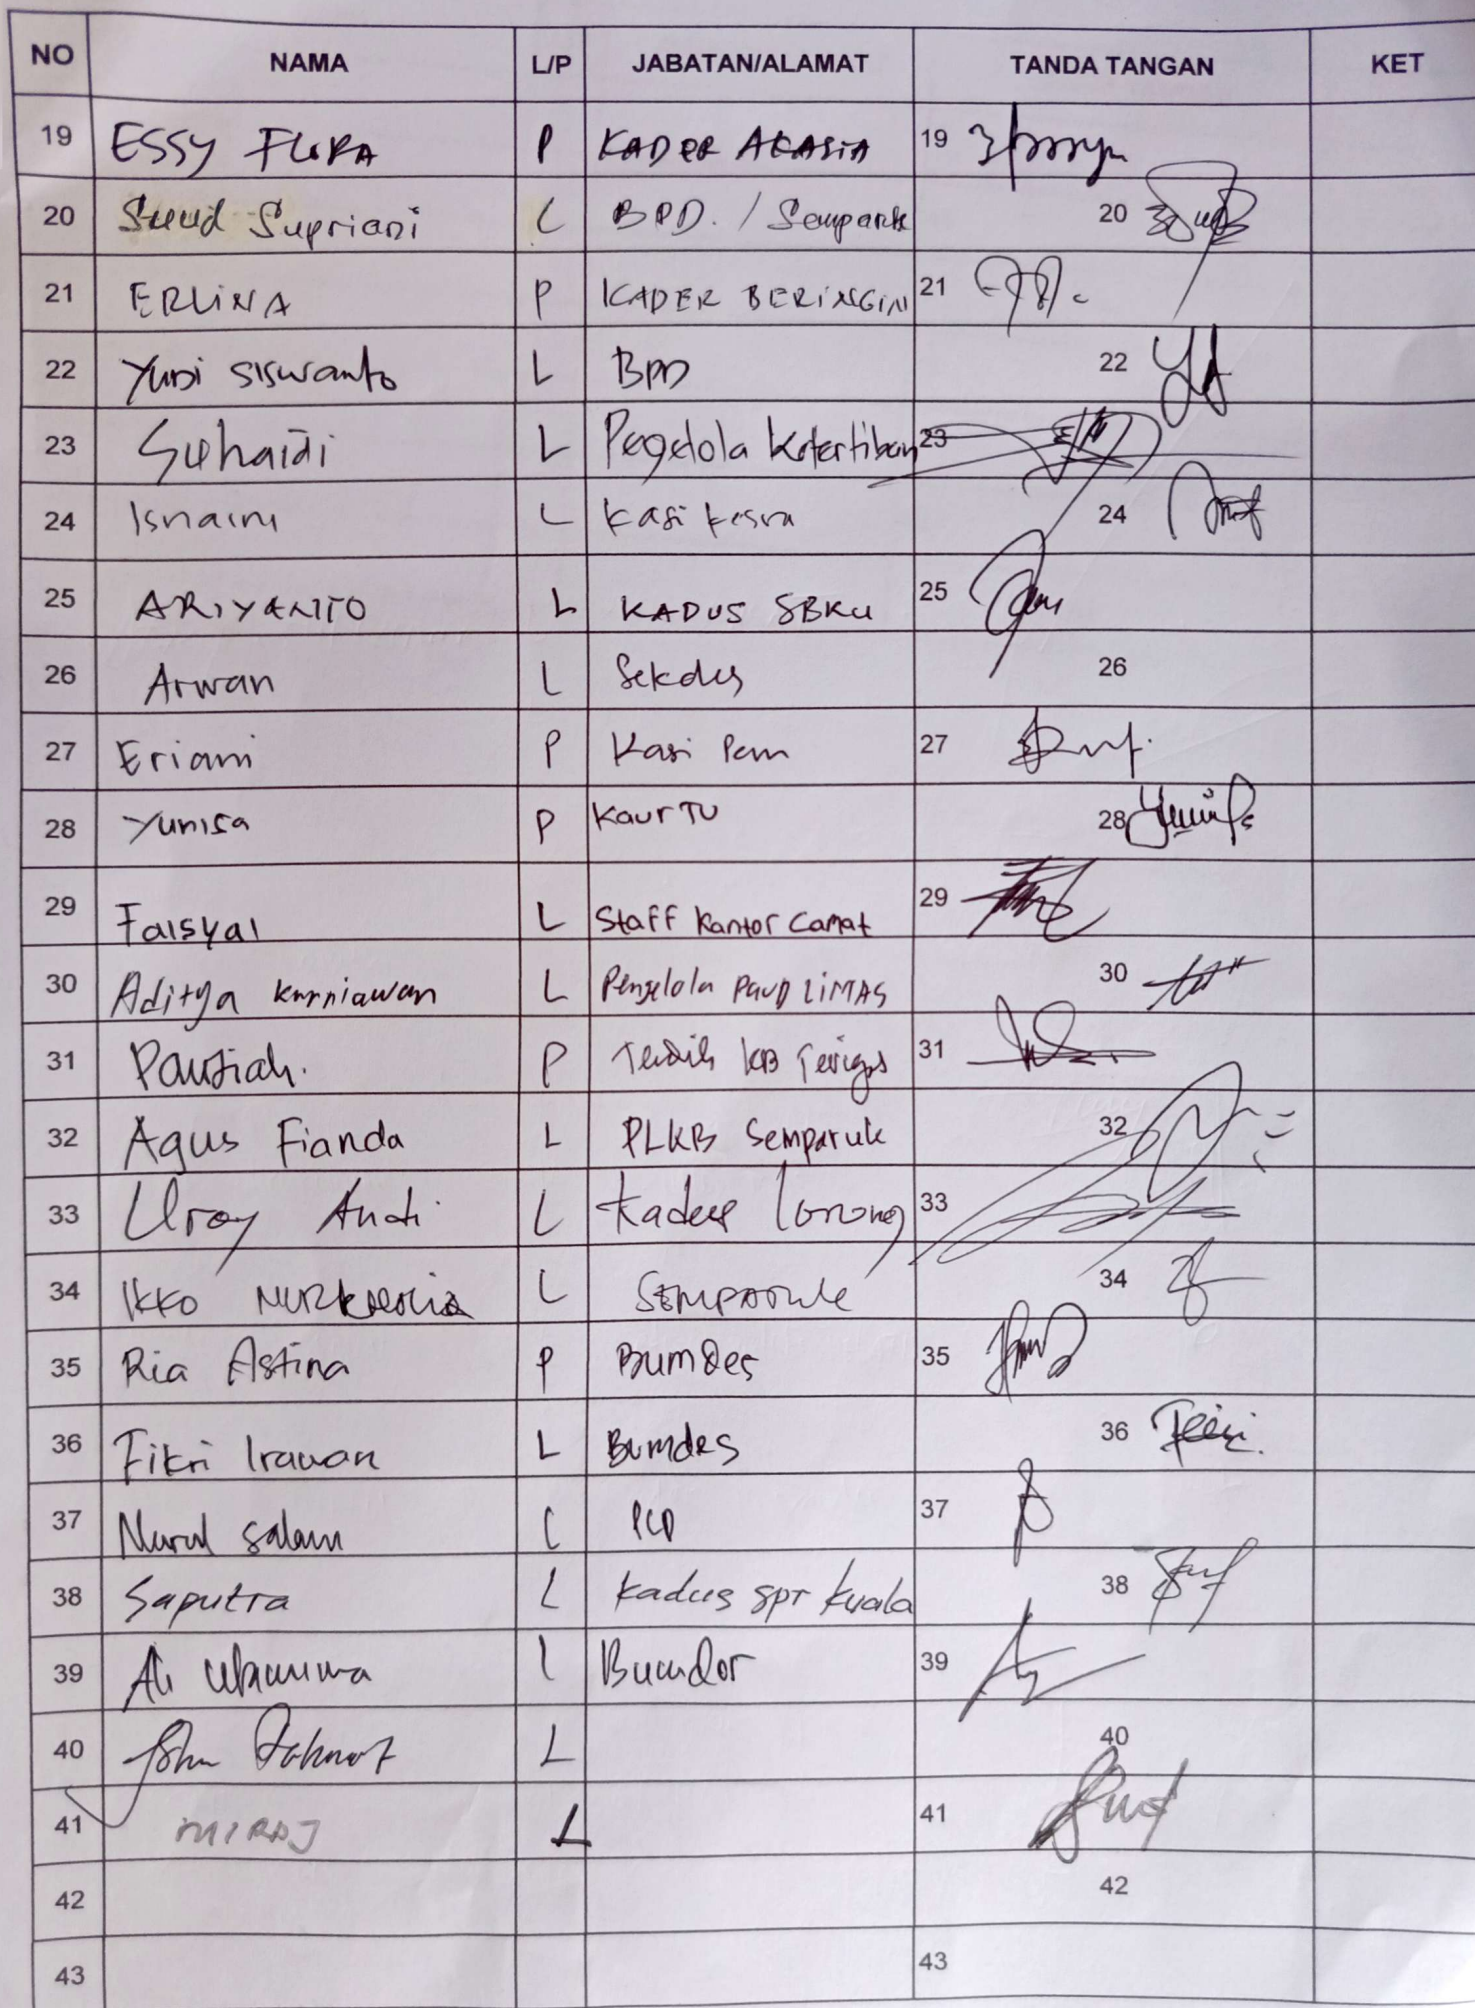 NO NAMA L/P JABATAN/ALAMAT TANDA TANGAN KET
19 ESSY FLORA P KADER AKASIA 19
20 Suud Supriani L BPD. / Semparuk 20
21 ERLINA P KADER BERINGIN 21
22 Yudi Siswanto L BPD 22
23 Suhaidi L Pegelola Ketertiban 23
24 Isnaini L Kasi Kesra 24
25 ARIYANTO L KADUS SBKU 25
26 Arwan L Sekdes 26
27 Eriani P Kasi Pem 27
28 Yunisa P Kaur TU 28
29 Faisyal L Staff Kantor Camat 29
30 Aditya Kurniawan L Pengelola PAUD LIMAS 30
31 Pausiah. P KB Terigas 31
32 Agus Fianda L PLKB Semparuk 32
33 Uray Andi L Kadus Lorong 33
34 IKKO L SEMPARUK 34
35 Ria Astina P Bumdes 35
36 Fikri Irawan L Bumdes 36
37 Nurul Salam L 37
38 Saputra L Kadus spr Kuala 38
39 Ali L 39
40 John L 40
41 MIRAJ L 41
42 42
43 43